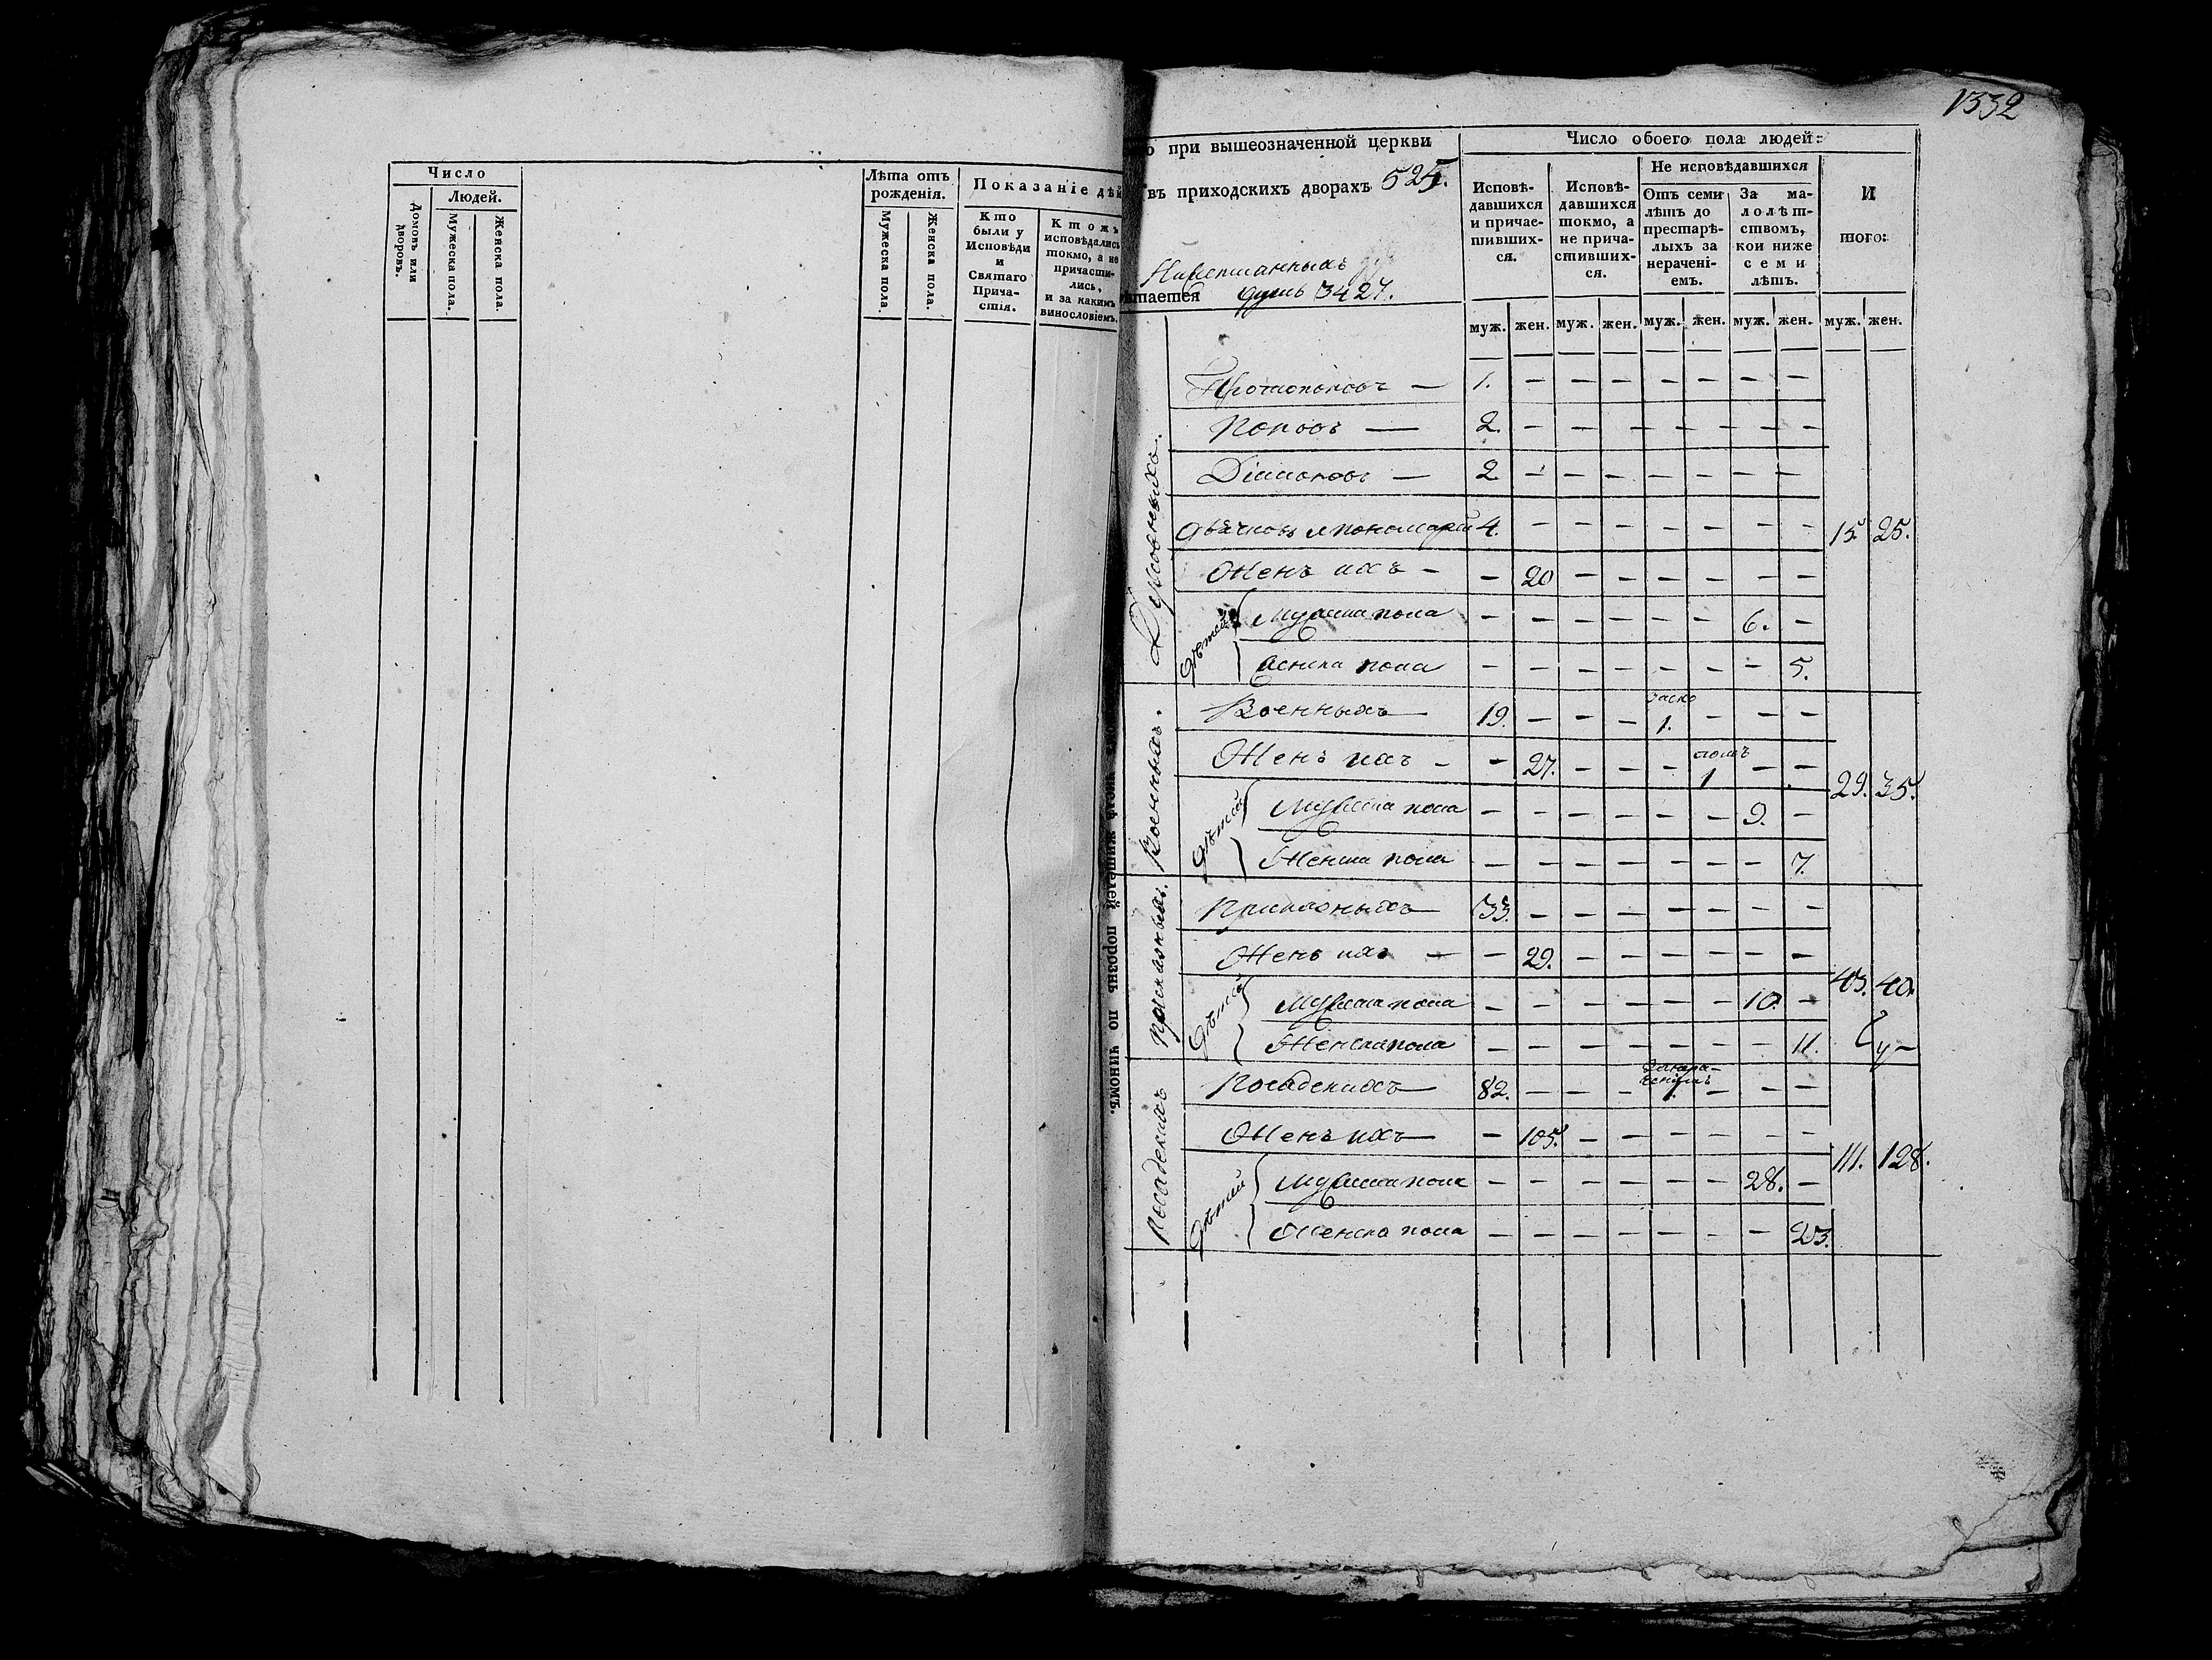 1332
Число
Людей.
Домовъ или дворовъ.
Мужеска пола.
Женска пола.
Лѣта отъ рожденія.
Мужеска пола.
Женска пола.
Показаніе дѣй
Кто
были у
Исповѣди
и
Святаго
Прича-
стія.
Ктожъ
исповѣдались
токмо, а не
причасти-
лись,
и за какимъ
винословіемъ.
о при вышеозначенной церкви
въ приходскихъ дворахъ 525.
душъ 3427.
итается
Число обоего пола людей:
Исповѣ-
давшихся
и причас-
тивших-
ся.
Исповѣ-
давшихся
токмо, а
не прича-
стивших-
ся.
Не исповѣдавшихся
Отъ семи
лѣтъ до
престарѣ-
лыхъ за
нерачені-
емъ.
За ма-
лолѣт-
ствомъ,
кои ниже
семи
лѣтъ.
И
того:
муж. жен. муж. жен. муж. жен. муж. жен. муж. жен.
числѣ жителей порознь по чиномъ.
Духовныхъ.
Протопоповъ — 1. — — — — — — —
Поповъ — 2. — — — — — — —
Діаконовъ — 2 — — — — — — —
Дьячковъ и пономарей 4. — — — — — — — 15. 25.
Женъ ихъ — — 20 — — — — — —
Дѣтей
Мужеска пола — — — — — — 6. —
Женска пола — — — — — — — 5.
Военныхъ.
Военныхъ — 19. — — — 1. — — —
Женъ ихъ — — 27. — — — 1 — — 29. 35.
Дѣтей
Мужеска пола — — — — — — 9. —
Женска пола — — — — — — — 7.
Приказныхъ.
Приказныхъ — 33. — — — — — — —
Женъ ихъ — — 29. — — — — — — 43. 40.
Дѣтей
Мужеска пола — — — — — — 10. —
Женска пола — — — — — — — 11.
Посадскихъ
Посадскихъ — 82. — — — 1. — — —
Женъ ихъ — — 105. — — — — — — 111. 128.
Дѣтей
Мужеска пола — — — — — — 28. —
Женска пола — — — — — — — 23.